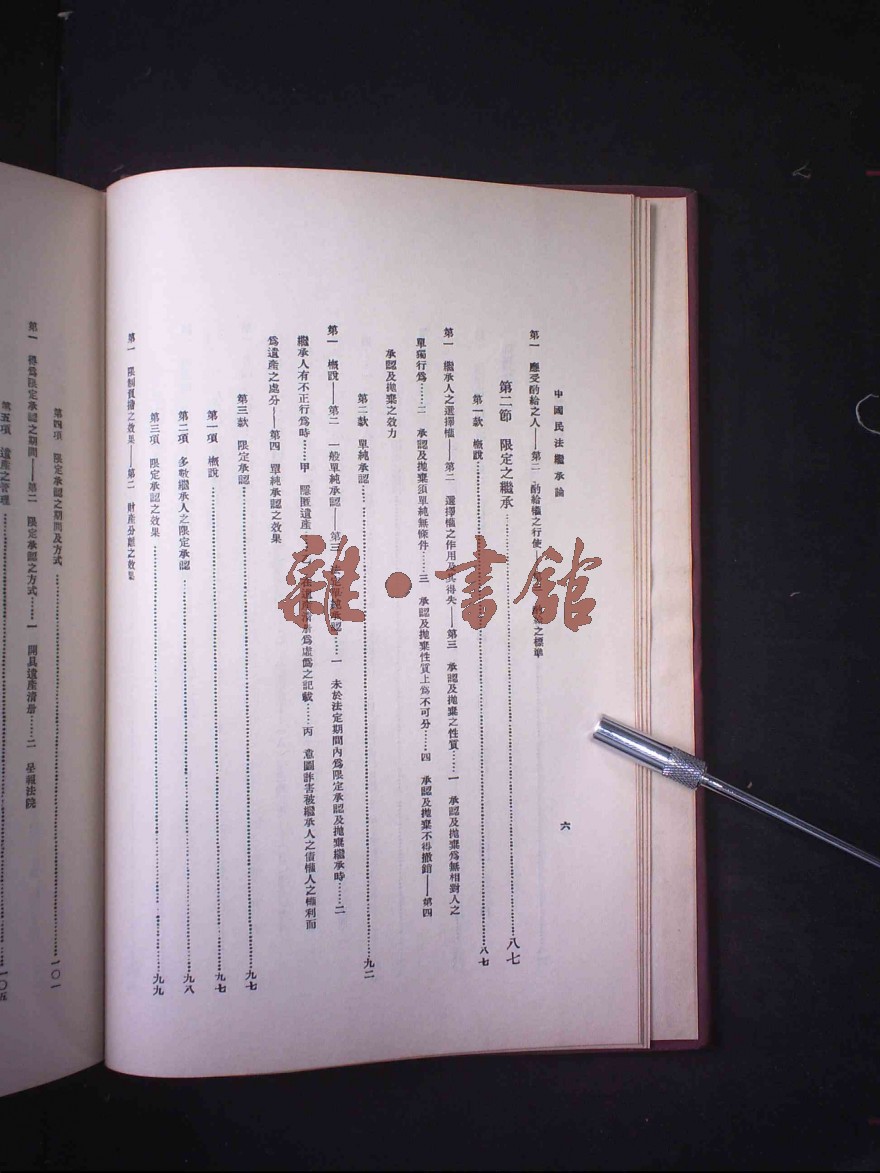 中國民法繼承論
六
第一 應受酌給之人——第二 酌給權之行使——第三 酌給之標準
第二節 限定之繼承……八七
第一款 概說……八七
第一 繼承人之選擇權——第二 選擇權之作用及其得失——第三 承認及拋棄之性質……一 承認及拋棄爲無相對人之
單獨行爲……二 承認及拋棄須單純無條件……三 承認及拋棄性質上爲不可分……四 承認及拋棄不得撤銷——第四
承認及拋棄之效力
第二款 單純承認……九二
第一 概說——第二 一般單純承認——第三 單純承認……一 未於法定期間內爲限定承認及拋棄繼承時……二
繼承人有不正行爲時……甲 隱匿遺產 遺產清册爲虛僞之記載……丙 意圖詐害被繼承人之債權人之權利而
爲遺產之處分——第四 單純承認之效果
第三款 限定承認……九七
第一項 概說……九七
第二項 多數繼承人之限定承認……九八
第三項 限定承認之效果……九九
第一 限制責擔之效果——第二 財產分離之效果
第四項 限定承認之期間及方式……一〇一
第一 得爲限定承認之期間——第二 限定承認之方式……一 開具遺產清册……二 呈報法院
第五項 遺產之管理……一〇五
雜·書館